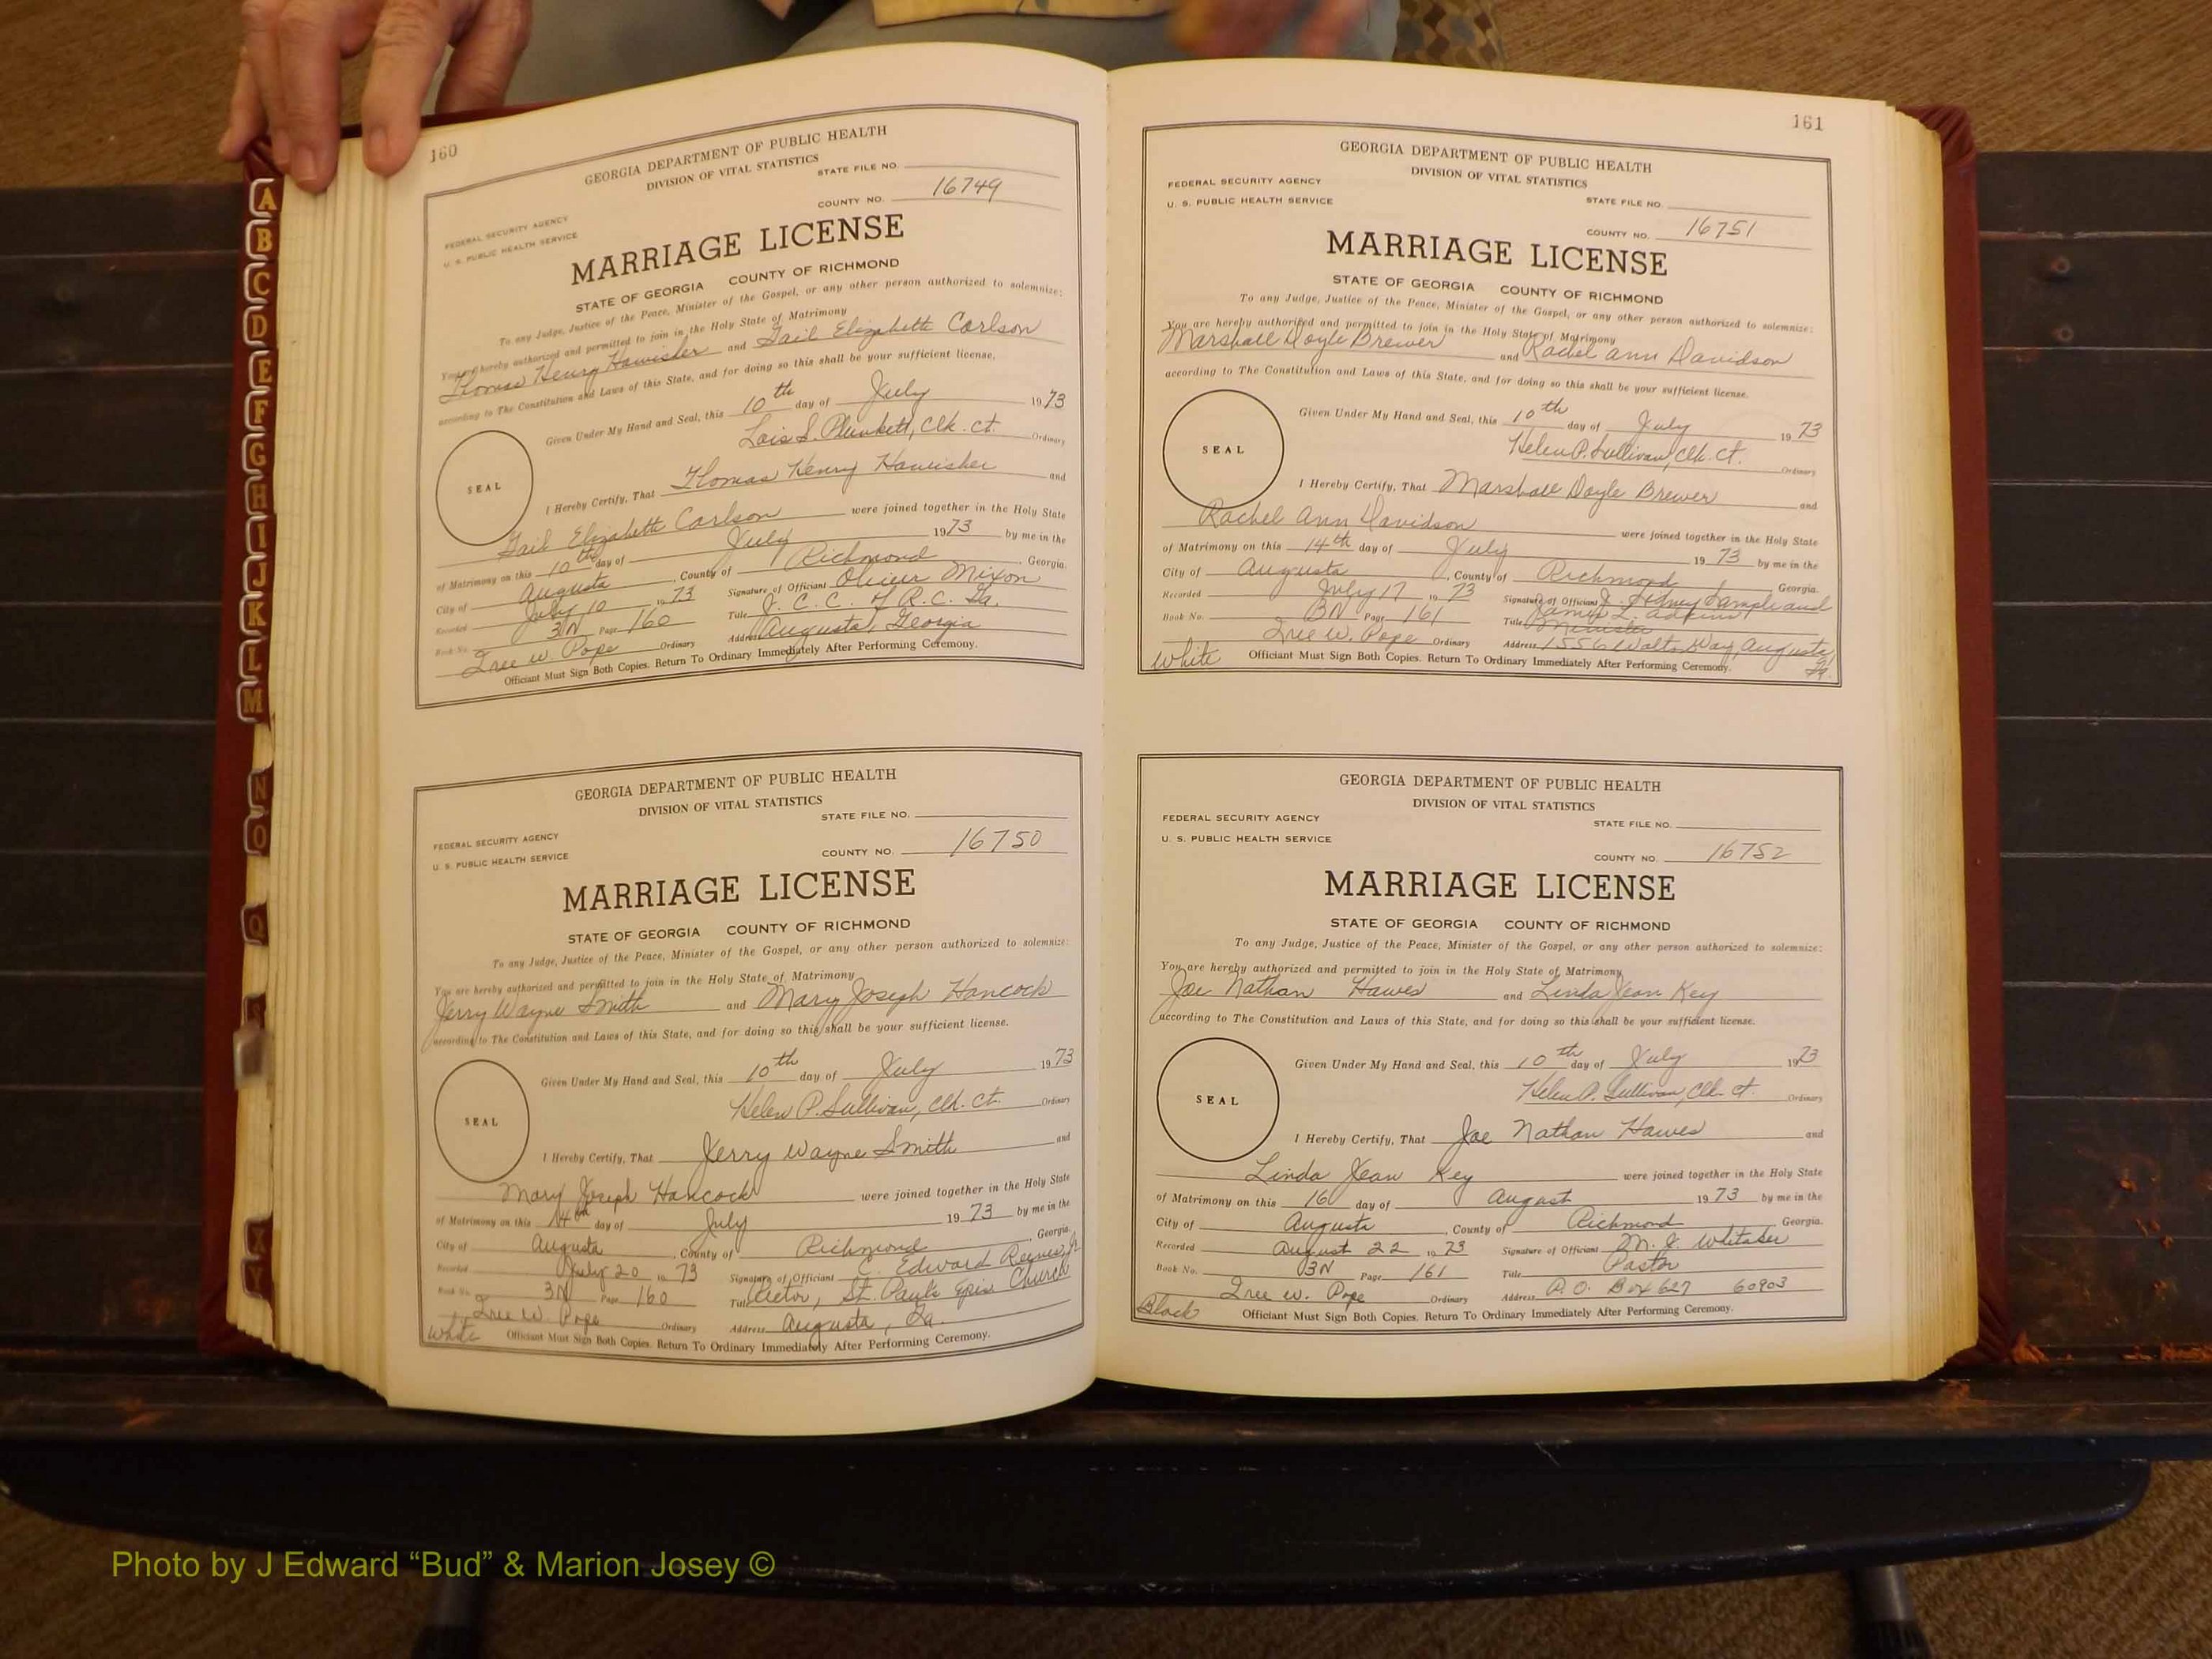 A
B
C
D
E
F
G
H
I
J
K
L
M
N
O
Q
S
X
Y
160
GEORGIA DEPARTMENT OF PUBLIC HEALTH
DIVISION OF VITAL STATISTICS
STATE FILE NO.
FEDERAL SECURITY AGENCY
U. S. PUBLIC HEALTH SERVICE
COUNTY NO. 16749
MARRIAGE LICENSE
STATE OF GEORGIA COUNTY OF RICHMOND
To any Judge, Justice of the Peace, Minister of the Gospel, or any other person authorized to solemnize:
You are hereby authorized and permitted to join in the Holy State of Matrimony
Thomas Henry Hawisher and Gail Elizabeth Carlson
according to The Constitution and Laws of this State, and for doing so this shall be your sufficient license.
Given Under My Hand and Seal, this 10th day of July 1973
Lois S. Plunkett, Clk. Ct. Ordinary
SEAL
I Hereby Certify, That Thomas Henry Hawisher and
Gail Elizabeth Carlson were joined together in the Holy State
of Matrimony on this 10th day of July 1973 by me in the
City of Augusta, County of Richmond, Georgia.
Recorded July 10 1973 Signature of Officiant Oliver Mixon
Book No. 3N Page 160 Title J. C. C. of R. C. Ga.
Iree W. Pope Ordinary Address Augusta, Georgia
Officiant Must Sign Both Copies. Return To Ordinary Immediately After Performing Ceremony.
GEORGIA DEPARTMENT OF PUBLIC HEALTH
DIVISION OF VITAL STATISTICS
STATE FILE NO.
FEDERAL SECURITY AGENCY
U. S. PUBLIC HEALTH SERVICE
COUNTY NO. 16750
MARRIAGE LICENSE
STATE OF GEORGIA COUNTY OF RICHMOND
To any Judge, Justice of the Peace, Minister of the Gospel, or any other person authorized to solemnize:
You are hereby authorized and permitted to join in the Holy State of Matrimony
Jerry Wayne Smith and Mary Joseph Hancock
according to The Constitution and Laws of this State, and for doing so this shall be your sufficient license.
Given Under My Hand and Seal, this 10th day of July 1973
Helen P. Sullivan, Clk. Ct. Ordinary
SEAL
I Hereby Certify, That Jerry Wayne Smith and
Mary Joseph Hancock were joined together in the Holy State
of Matrimony on this 14th day of July 1973 by me in the
City of Augusta, County of Richmond, Georgia.
Recorded July 20 1973 Signature of Officiant C. Edward Reeves, Jr
Book No. 3N Page 160 Title Rector, St. Paul's Epis Church
Iree W. Pope Ordinary Address Augusta, Ga.
White Officiant Must Sign Both Copies. Return To Ordinary Immediately After Performing Ceremony.
161
GEORGIA DEPARTMENT OF PUBLIC HEALTH
DIVISION OF VITAL STATISTICS
FEDERAL SECURITY AGENCY
U. S. PUBLIC HEALTH SERVICE
STATE FILE NO.
COUNTY NO. 16751
MARRIAGE LICENSE
STATE OF GEORGIA COUNTY OF RICHMOND
To any Judge, Justice of the Peace, Minister of the Gospel, or any other person authorized to solemnize:
You are hereby authorized and permitted to join in the Holy State of Matrimony
Marshall Doyle Brewer and Rachel Ann Davidson
according to The Constitution and Laws of this State, and for doing so this shall be your sufficient license.
Given Under My Hand and Seal, this 10th day of July 1973
Helen P. Sullivan, Clk. Ct. Ordinary
SEAL
I Hereby Certify, That Marshall Doyle Brewer and
Rachel Ann Davidson were joined together in the Holy State
of Matrimony on this 14th day of July 1973 by me in the
City of Augusta, County of Richmond, Georgia.
Recorded July 17 1973 Signature of Officiant J. Sidney and
Book No. 3N Page 161 Title Minister
Iree W. Pope Ordinary Address 1556 Walton Way, Augusta, Ga.
White Officiant Must Sign Both Copies. Return To Ordinary Immediately After Performing Ceremony.
GEORGIA DEPARTMENT OF PUBLIC HEALTH
DIVISION OF VITAL STATISTICS
FEDERAL SECURITY AGENCY
U. S. PUBLIC HEALTH SERVICE
STATE FILE NO.
COUNTY NO. 16752
MARRIAGE LICENSE
STATE OF GEORGIA COUNTY OF RICHMOND
To any Judge, Justice of the Peace, Minister of the Gospel, or any other person authorized to solemnize:
You are hereby authorized and permitted to join in the Holy State of Matrimony
Joe Nathan Hawes and Linda Jean Key
according to The Constitution and Laws of this State, and for doing so this shall be your sufficient license.
Given Under My Hand and Seal, this 10th day of July 1973
Helen P. Sullivan, Clk. Ct. Ordinary
SEAL
I Hereby Certify, That Joe Nathan Hawes and
Linda Jean Key were joined together in the Holy State
of Matrimony on this 16 day of August 1973 by me in the
City of Augusta, County of Richmond Georgia.
Recorded August 22 1973 Signature of Officiant M. J. Whitaker
Book No. 3N Page 161 Title Pastor
Iree W. Pope Ordinary Address P.O. Box 627 60903
Black Officiant Must Sign Both Copies. Return To Ordinary Immediately After Performing Ceremony.
Photo by J Edward “Bud” & Marion Josey ©